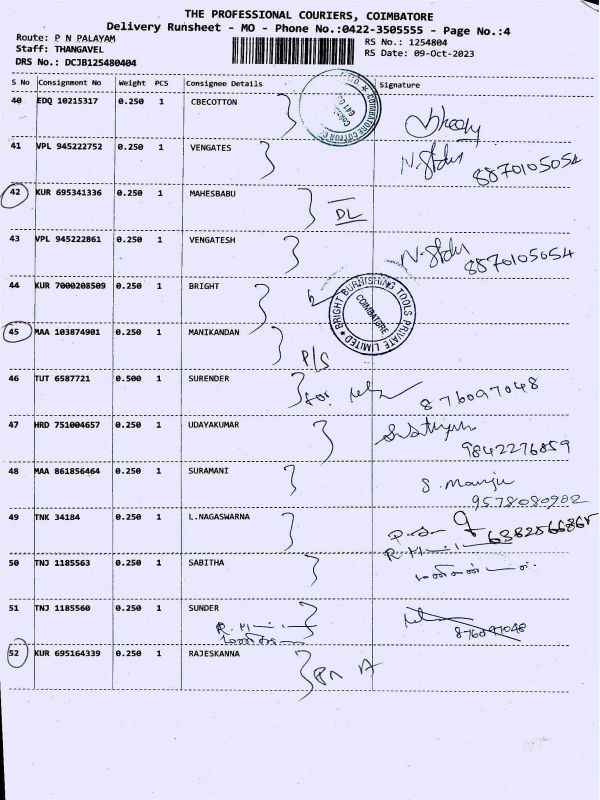 THE PROFESSIONAL COURIERS, COIMBATORE
Delivery Runsheet - MO - Phone No.:0422-3505555 - Page No.:4
Route: P N PALAYAM
RS No.: 1254804
Staff: THANGAVEL
RS Date: 09-Oct-2023
DRS No.: DCJB125480404
S No Consignment No Weight PCS Consignee Details Signature
40 EDQ 10215317 0.250 1 CBECOTTON
41 VPL 945222752 0.250 1 VENGATES
8870105054
42 KUR 695341336 0.250 1 MAHESBABU
DL
43 VPL 945222861 0.250 1 VENGATESH
8870105054
44 KUR 7000208509 0.250 1 BRIGHT
BRIGHT BURNISHING TOOLS PRIVATE LIMITED
COIMBATORE
45 MAA 103874901 0.250 1 MANIKANDAN
P/S
46 TUT 6587721 0.500 1 SURENDER
876097048
47 HRD 751004657 0.250 1 UDAYAKUMAR
9842276859
48 MAA 861856464 0.250 1 SURAMANI
S. Manju
9578080982
49 TNK 34184 0.250 1 L.NAGASWARNA
50 TNJ 1185563 0.250 1 SABITHA
51 TNJ 1185560 0.250 1 SUNDER
876097048
52 KUR 695164339 0.250 1 RAJESKANNA